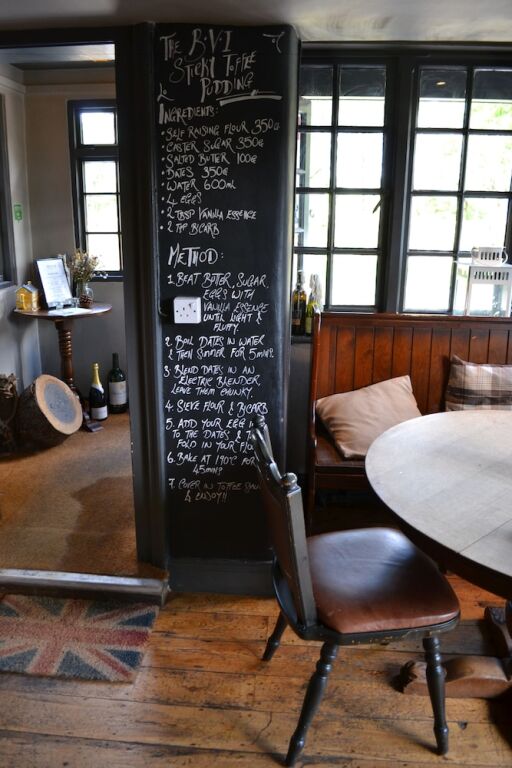 THE B.V.I
STICKY TOFFEE
PUDDING
INGREDIENTS:
• SELF RAISING FLOUR 350G
• CASTER SUGAR 350G
• SALTED BUTTER 100G
• DATES 350G
• WATER 600ML
• 4 EGGS
• 2 TBSP VANILLA ESSENCE
• 2 TSP BICARB
METHOD:
1. BEAT BUTTER, SUGAR,
EGGS WITH
VANILLA ESSENCE
UNTIL LIGHT &
FLUFFY.
2. BOIL DATES IN WATER
& THEN SIMMER FOR 5MINS.
3. BLEND DATES IN AN
ELECTRIC BLENDER,
LEAVE THEM CHUNKY.
4. SIEVE FLOUR & BICARB
5. ADD YOUR EGG
TO THE DATES &
FOLD IN YOUR
6. BAKE AT 190°C FOR
45MINS
7. COVER IN TOFFEE
& ENJOY!!